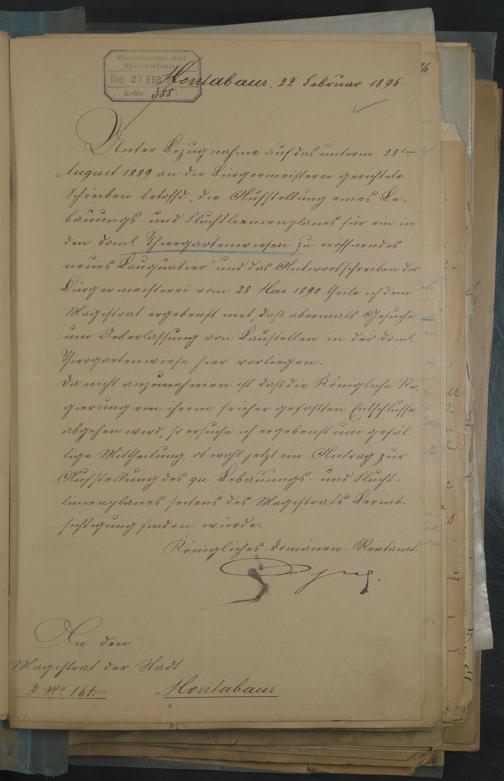 Bürgermeister-Amt
Montabaur
Eing. 27 FEB
J.-No. 388.
Montabaur, 22 Februar 1895.
Unter Bezugnahme auf das unterm 28ten
August 1889 an die Bürgermeisterei gerichtete
Schreiben betreffd. die Aufstellung eines Be-
bauungs- und Fluchtlinienplanes für ein in
den doml. Thiergartenwiesen zu eröffnendes
neues Bauquartier und das Antwortschreiben der
Bürgermeisterei vom 28 Mai 1890 theile ich dem
Magistrat ergebenst mit, daß abermals Gesuche
um Ueberlassung von Baustellen in der doml.
Thiergartenwiese hier vorliegen.
Da nicht anzunehmen ist daß die Königliche Re-
gierung von ihrem früher gefaßten Entschlusse
abgehen wird, so ersuche ich ergebenst um gefäl-
lige Mittheilung, ob wohl jetzt ein Antrag zur
Aufstellung des qu. Bebauungs- und Flucht-
linienplanes seitens des Magistrats Berück-
sichtigung finden würde.
Königliches Domänen-Rentamt
An den
Magistrat der Stadt
J. No. 161. Montabaur